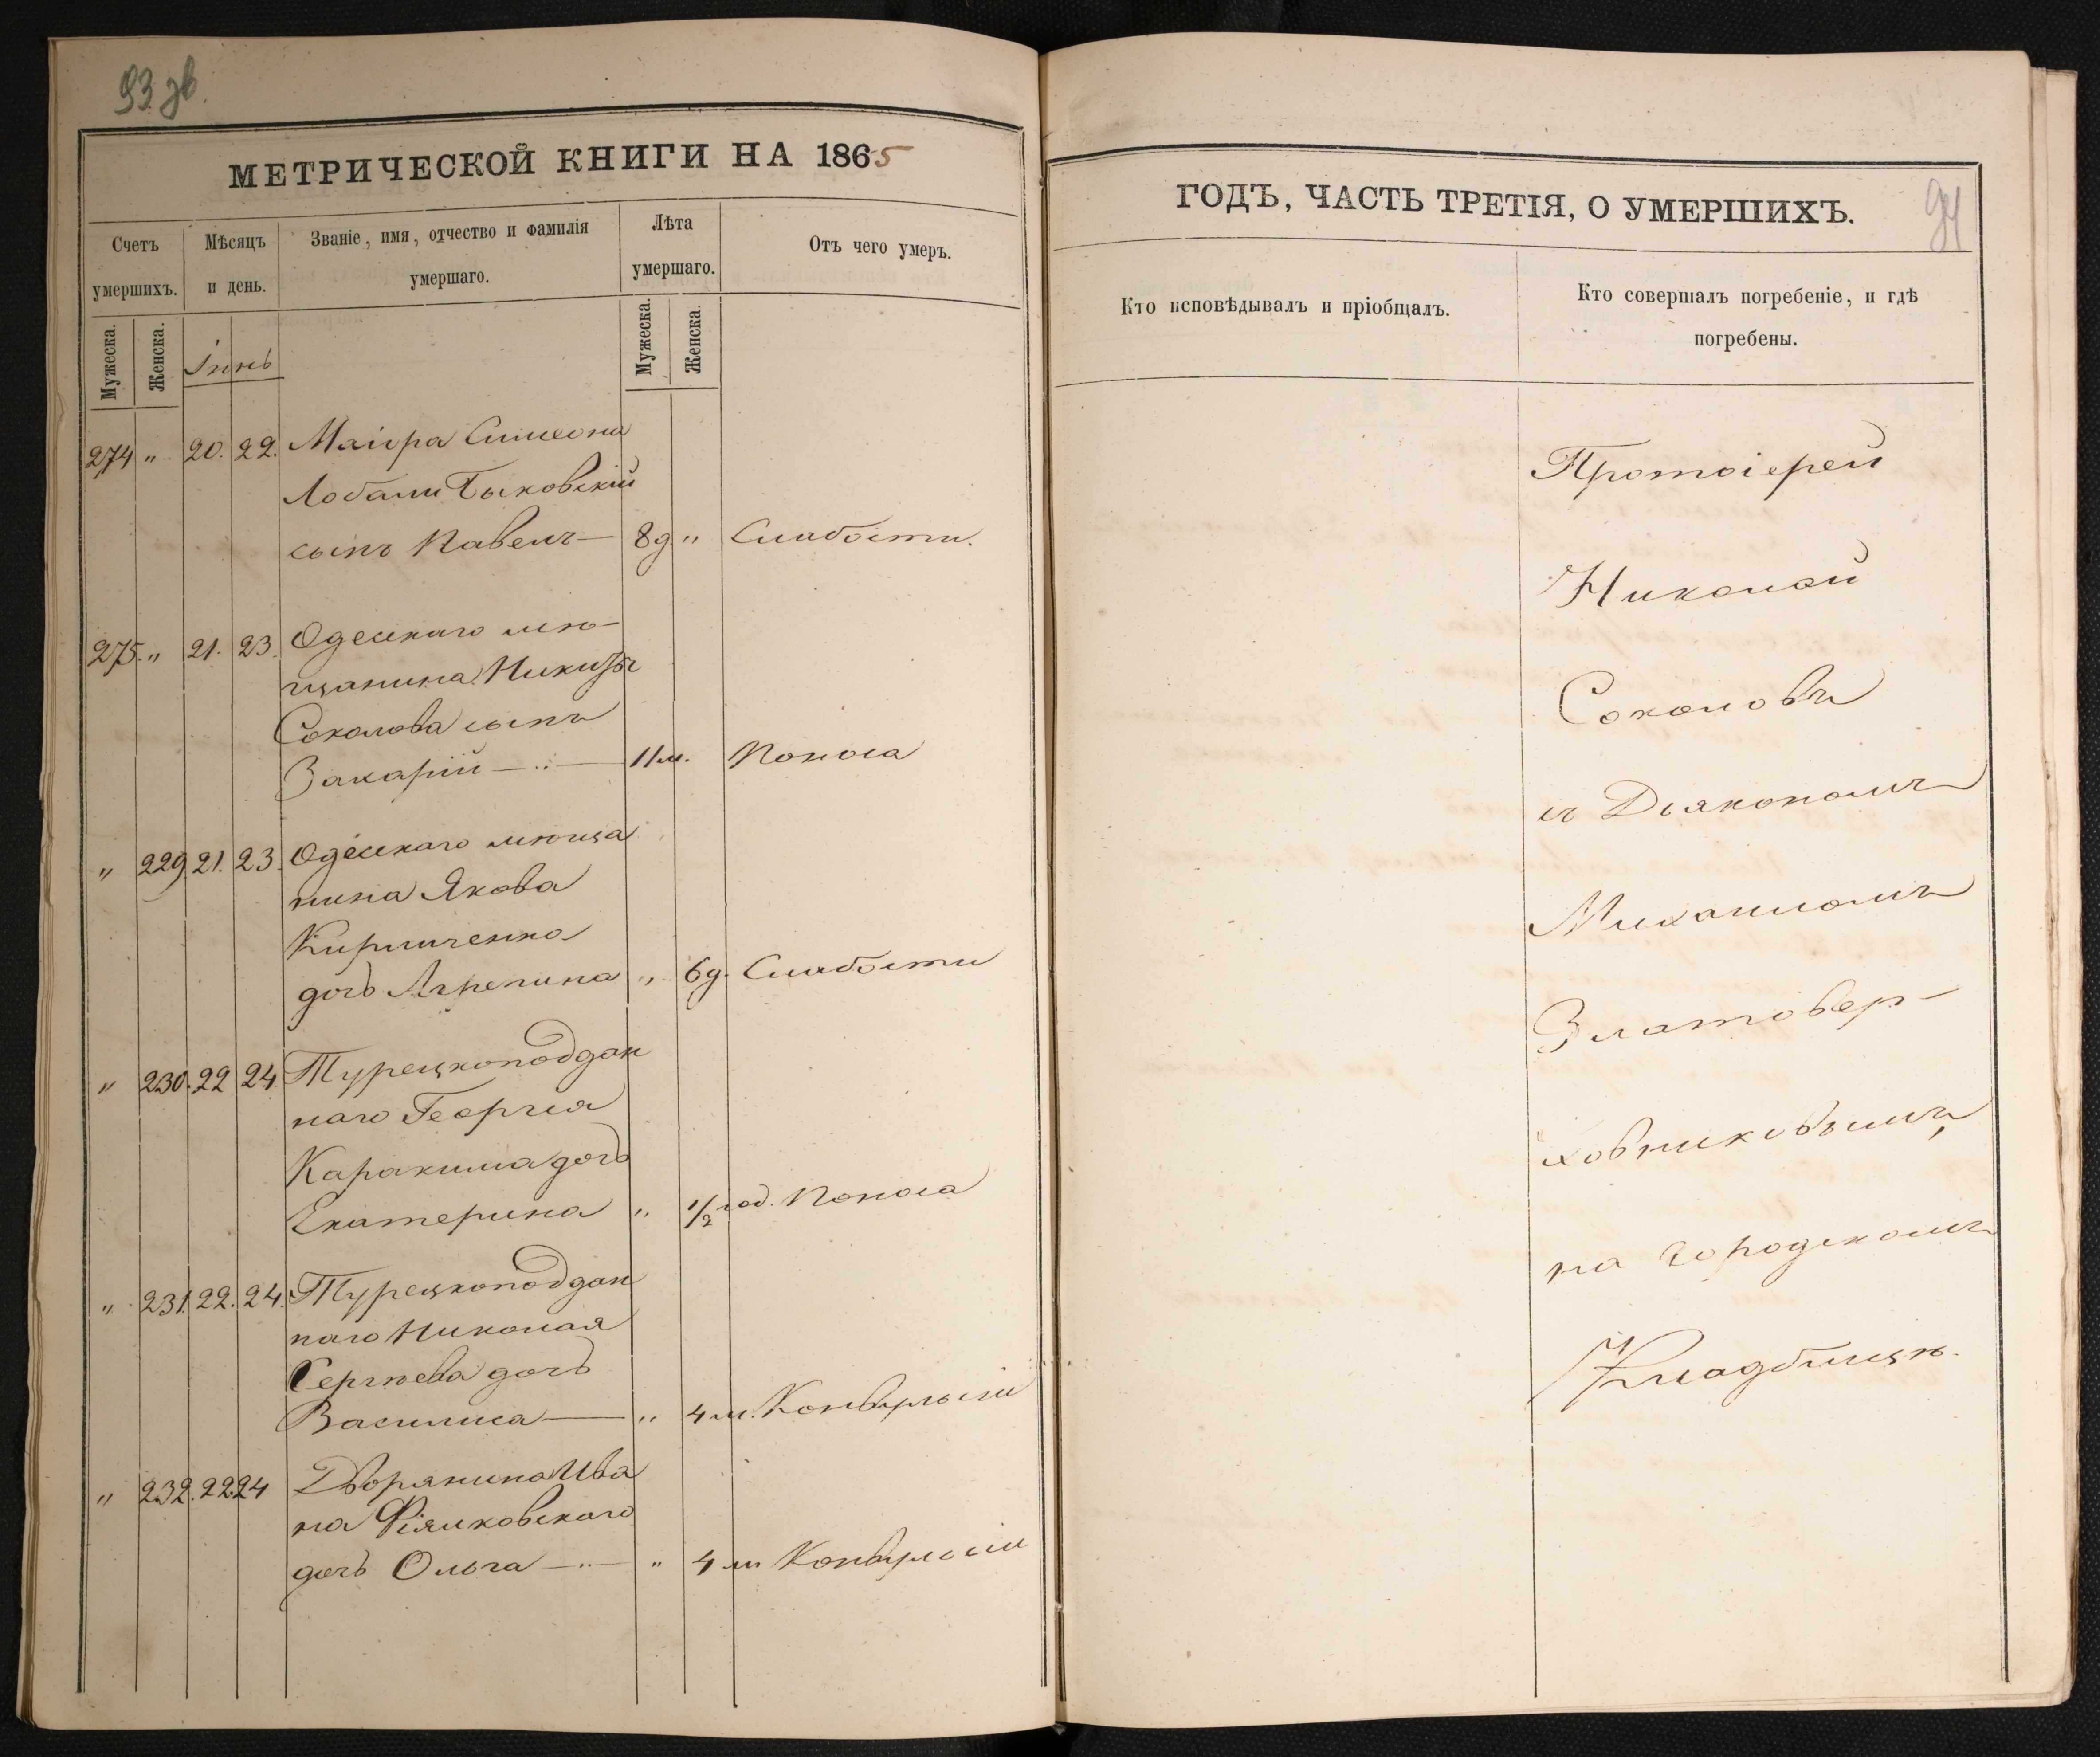 93 зв.
МЕТРИЧЕСКОЙ КНИГИ НА 1865
Счетъ умершихъ.
Мѣсяцъ и день.
Званіе, имя, отчество и фамилія умершаго.
Лѣта умершаго.
Отъ чего умеръ.
Мужеска.
Женска.
Мужеска.
Женска.
Іюнь
274 " 20. 22. Маіора Симеона
Лобаши Быковскій
сынъ Павелъ — 8 д " Слабости.
275. " 21. 23. Одесскаго мѣ-
щанина Никиты
Соколова сынъ
Захарій — " — 11 м. Поноса
" 229 21. 23. Одесскаго мѣща
нина Якова
дочь Агрепина " 6 д. Слабости
" 230. 22 24 Турецкоподдан
наго Георгія
дочь
Екатерина " 1/2 год. Поноса
" 231. 22. 24. Турецкоподдан
наго Николая
Сергѣева дочь
Василиса — " 4 м. Конвульсіи
" 232. 22 24 Дворянина Ива
на
дочь Ольга — " — " 4 м Конвульсіи
ГОДЪ, ЧАСТЬ ТРЕТІЯ, О УМЕРШИХЪ.
94
Кто исповѣдывалъ и пріобщалъ.
Кто совершалъ погребеніе, и гдѣ погребены.
Протоіерей
Николай
Соколовъ
съ Дьякономъ
Михаиломъ
Златовер-
ховниковымъ,
на городскомъ
Кладбищѣ.